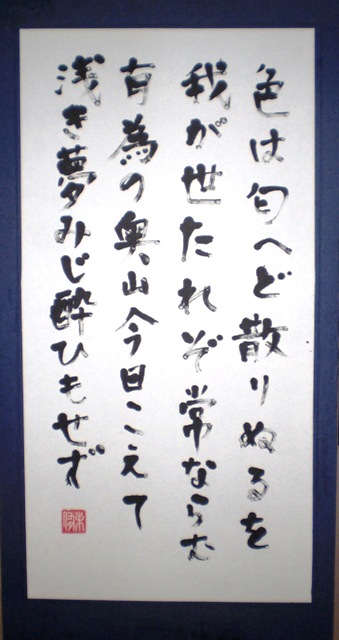 色は匂へど散りぬるを
我が世たれぞ常ならむ
有為の奥山今日こえて
浅き夢みじ酔ひもせず